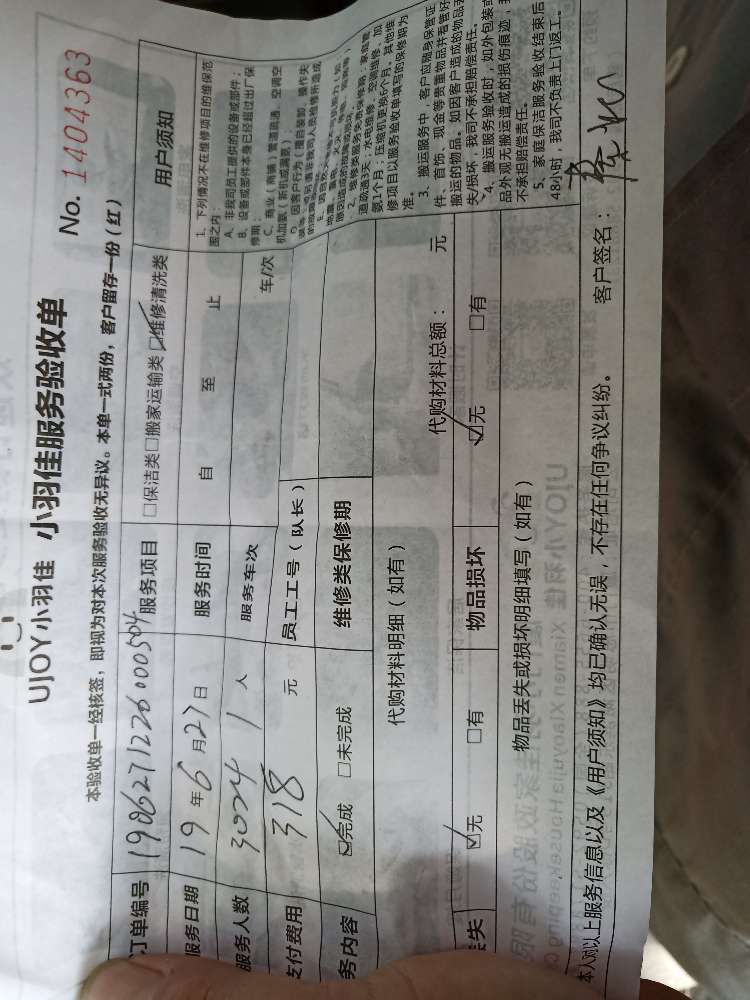 UJOY小羽佳 小羽佳服务验收单
No. 1404363
本验收单一经核签，即视为对本次服务验收无异议。本单一式两份，客户留存一份（红）
订单编号 190627122600504 服务项目 □保洁类□搬家运输类☑维修清洗类
服务日期 19年6月27日 服务时间 自 至 止
服务人数 3024 1人 服务车次 车/次
支付费用 318 元 员工工号（队长）
务内容 ☑完成 □未完成 维修类保修期
代购材料明细（如有） 代购材料总额： 元
失 ☑无 □有 物品损坏 ☑无 □有
物品丢失或损坏明细填写（如有）
用户须知
1. 下列情况不在维修项目的维保范
围之内：
A. 非我司员工提供的设备或部件；
B. 设备或部件本身已经超过出厂保
修期；
C. 商业（商铺）管道疏通、空调空
机加氨（新机或漏氨）；
D. 因客户行为（擅自装卸、操作失
道疏通3天；水电维修、空调维修、加
氨1个月；压缩机更换6个月。其他维
修项目以服务验收单填写的保修期为
准。
3. 搬运服务中，客户应随身保管证
件、首饰、现金等贵重物品并看管好
搬运的物品。如因客户造成的物品丢
失/损坏，我司不承担赔偿责任。
4. 搬运服务验收时，如外包装或
品外观无搬运造成的损伤痕迹，我
不承担赔偿责任。
5. 家庭保洁服务验收结束后
48小时，我司不负责上门返工。
本人对以上服务信息以及《用户须知》均已确认无误，不存在任何争议纠纷。 客户签名：